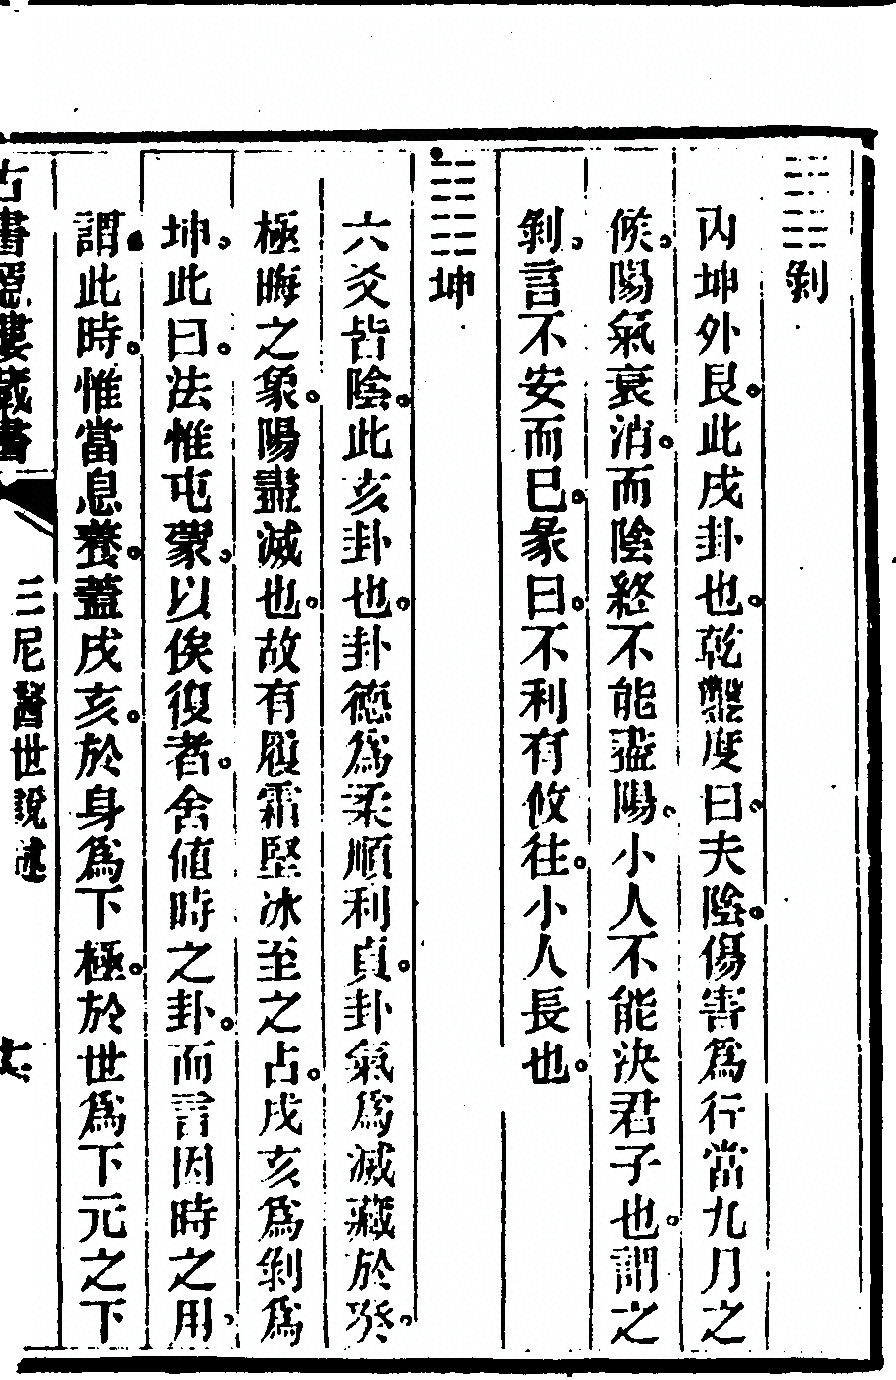 ䷖剝
內坤外艮。此戌卦也。乾鑿度曰。夫陰。傷害爲行當九月之
候。陽氣衰消。而陰終不能盡陽。小人不能決君子也。謂之
剝。言不安而已。彖曰。不利有攸往。小人長也。
䷁坤
六爻皆陰。此亥卦也。卦德爲柔順利貞。卦氣爲滅藏於癸。
極晦之象。陽盡滅也。故有履霜堅冰至之占。戌亥爲剝爲
坤。此曰。法惟屯蒙。以俟復者。舍値時之卦。而言因時之用。
謂此時。惟當息養。蓋戌亥。於身爲下極。於世爲下元之下
古書隱樓藏書
三尼醫世說述